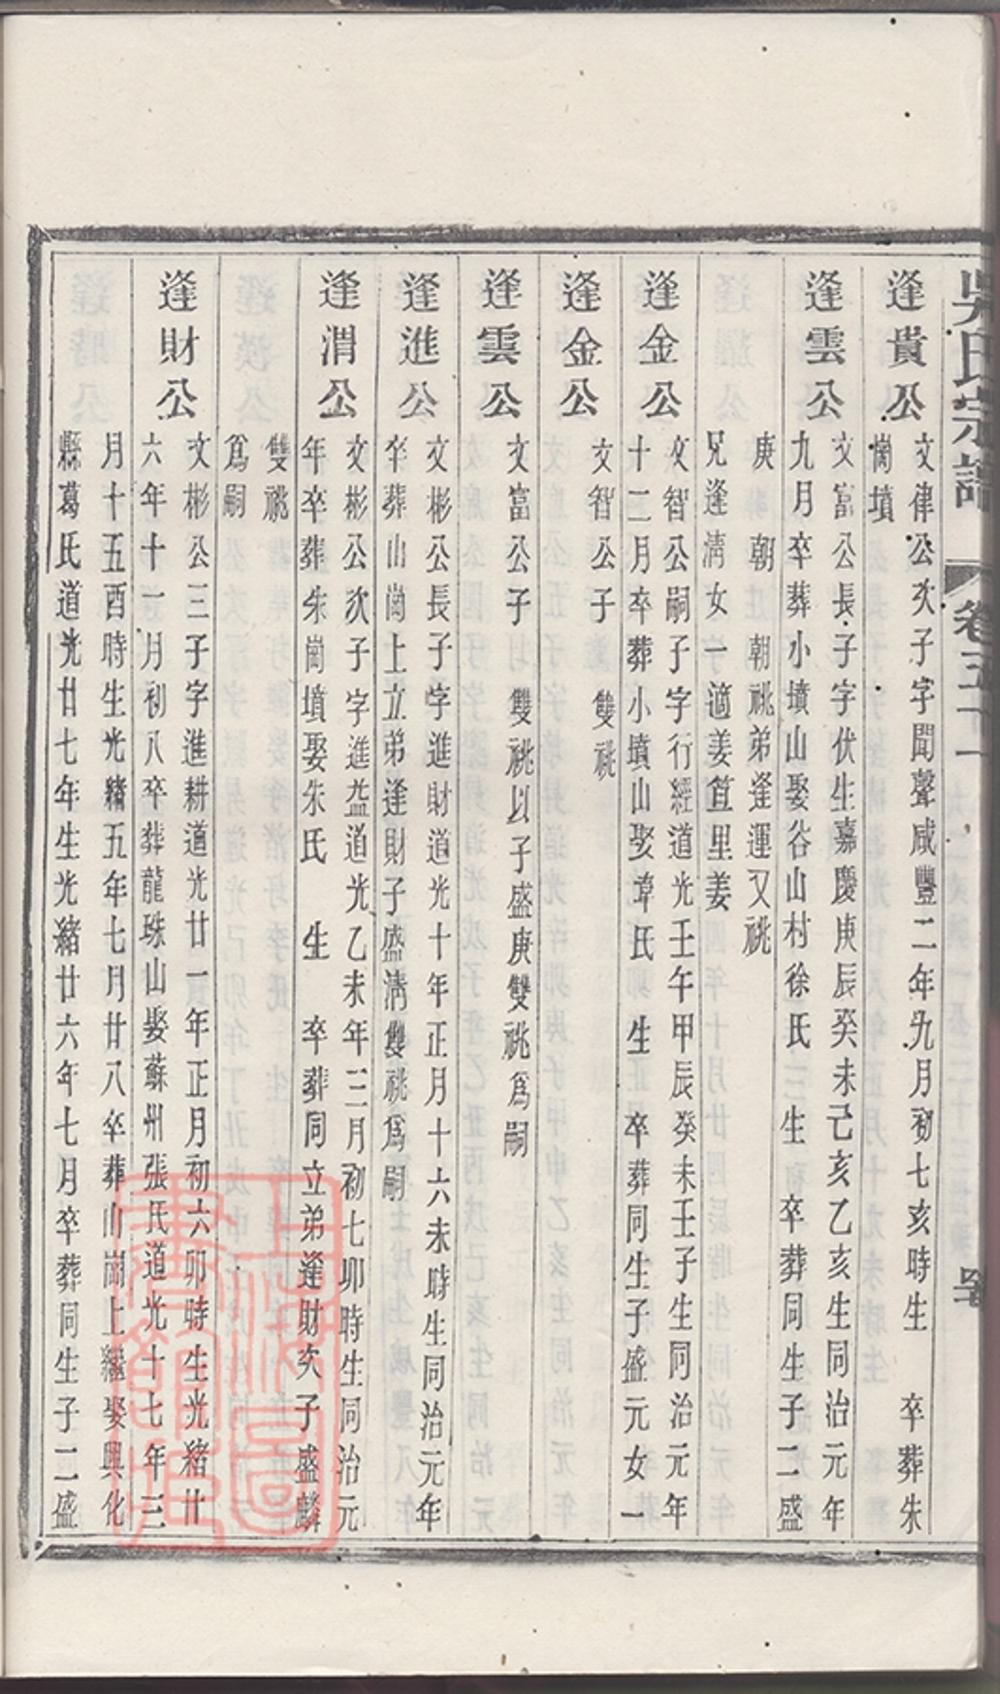 吳氏宗譜 卷五十一
逢貴公 文律公次子字聞聲咸豐二年九月初七亥時生 卒葬朱
崗墳
逢雲公 文富公長子字伏生嘉慶庚辰癸未己亥乙亥生同治元年
九月卒葬小墳山娶谷山村徐氏 生 卒葬同生子二盛
庚 朝 朝祧弟逢運又祧
兄逢清女一適姜笪里姜
逢金公 文智公嗣子字行經道光壬午甲辰癸未壬子生同治元年
十二月卒葬小墳山娶韋氏 生 卒葬同生子盛元女一
逢金公 文智公子 雙祧
逢雲公 文富公子 雙祧以子盛庚雙祧爲嗣
逢進公 文彬公長子字進財道光十年正月十六未時生同治元年
卒葬山崗上立弟逢財子盛清雙祧爲嗣
逢渭公 文彬公次子字進益道光乙未年三月初七卯時生同治元
年卒葬朱崗墳娶朱氏 生 卒葬同立弟逢財次子盛麟
雙祧
爲嗣
逢財公 文彬公三子字進耕道光廿一年正月初六卯時生光緒廿
六年十一月初八卒葬龍珠山娶蘇州張氏道光十七年三
月十五酉時生光緒五年七月廿八卒葬山崗上繼娶興化
縣葛氏道光廿七年生光緒廿六年七月卒葬同生子二盛